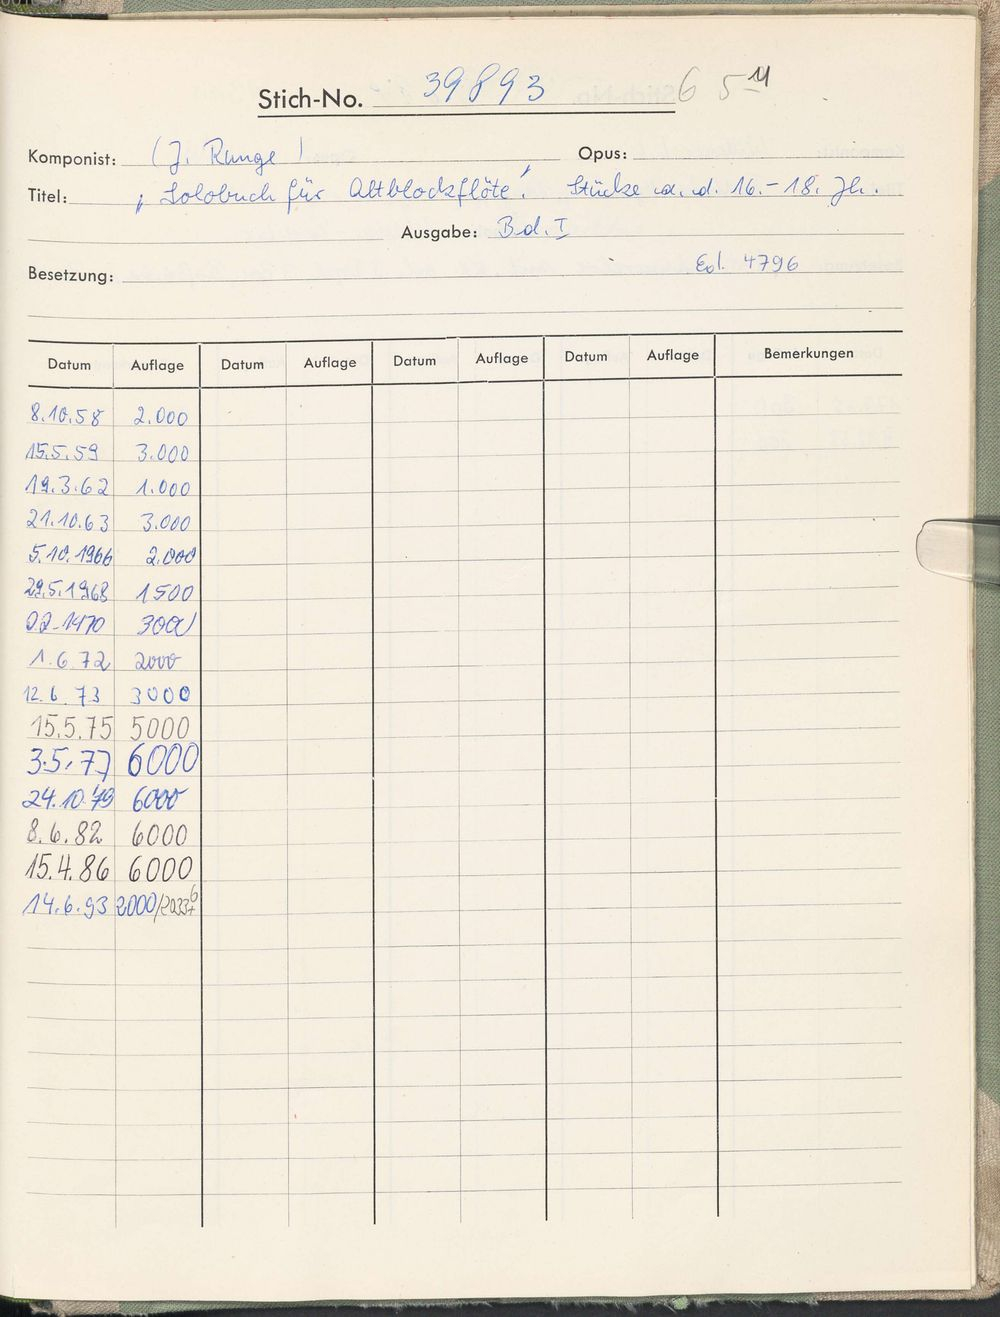 Stich-No. 39893 6 5 11
Komponist: (J. Runge) Opus:
Titel: „Solobuch für Altblockflöte“. Stücke a. d. 16.-18. Jh.
Ausgabe: Bd. I
Besetzung: Ed. 4796
Datum Auflage Datum Auflage Datum Auflage Datum Auflage Bemerkungen
8.10.58 2.000
15.5.59 3.000
19.3.62 1.000
21.10.63 3.000
5.10.1966 2.000
29.5.1968 1500
1970 3000
1.6.72 2000
12.6.73 3000
15.5.75 5000
3.5.77 6000
24.10.79 6000
8.6.82 6000
15.4.86 6000
14.6.93 2000/2033